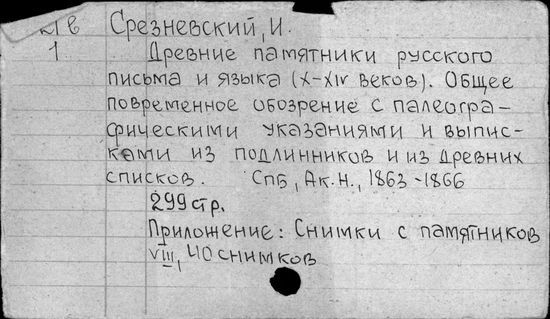 в Срезневский, И.
1 Древние памятники русского
письма и языка (X-XIV веков). Общее
повременное обозрение с палеогра-
фическими указаниями и выпис-
ками из подлинников и из древних
списков. СПБ, Ак.Н., 1863-1866
299 стр.
Приложение: Снимки с памятников
VIII, 40 снимков